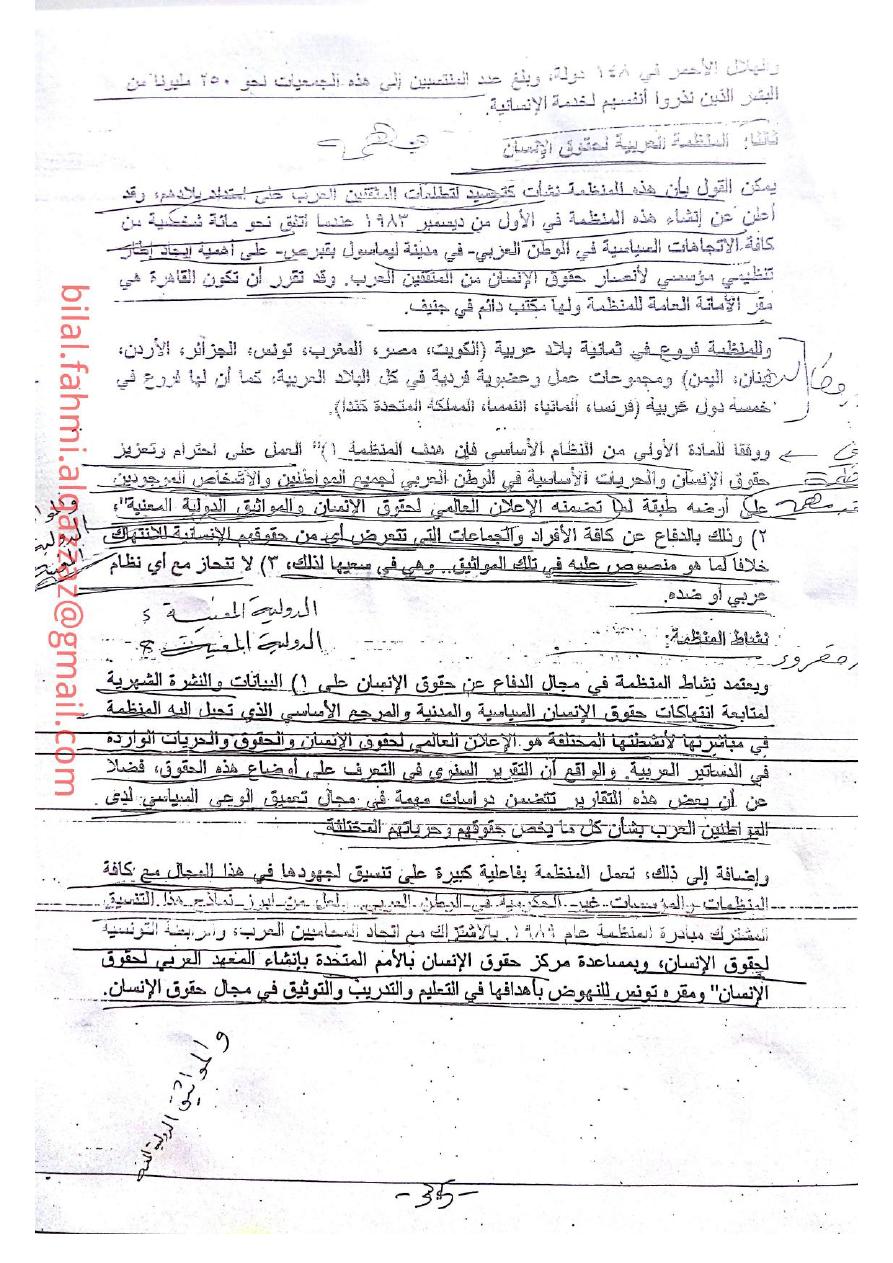 والهلال الأحمر في ١٤٨ دولة، وبلغ عدد المنتسبين إلى هذه الجمعيات نحو ٢٥٠ مليونا من
البشر الذين نذروا أنفسهم لخدمة الإنسانية.
ثالثا: المنظمة العربية لحقوق الإنسان
يمكن القول بأن هذه المنظمة نشأت كتجسيد لتطلعات المثقفين العرب على امتداد بلادهم، وقد
أعلن عن إنشاء هذه المنظمة في الأول من ديسمبر ١٩٨٣ عندما اتفق نحو مائة شخصية من
كافة الاتجاهات السياسية في الوطن العربي- في مدينة ليماسول بقبرص- على أهمية إيجاد إطار
تنظيمي مؤسسي لأنصار حقوق الإنسان من المثقفين العرب. وقد تقرر أن تكون القاهرة هي
مقر الأمانة العامة للمنظمة ولها مكتب دائم في جنيف.
وللمنظمة فروع في ثمانية بلاد عربية (الكويت، مصر، المغرب، تونس، الجزائر، الأردن،
لبنان، اليمن) ومجموعات عمل وعضوية فردية في كل البلاد العربية، كما أن لها فروع في
خمسة دول غربية (فرنسا، ألمانيا، النمسا، المملكة المتحدة كندا).
ووفقا للمادة الأولي من النظام الأساسي فإن هدف المنظمة ١)" العمل على احترام وتعزيز
حقوق الإنسان والحريات الأساسية في الوطن العربي لجميع المواطنين والأشخاص الموجودين
على أرضه طبقة لما تضمنه الإعلان العالمي لحقوق الإنسان والمواثيق الدولية المعنية"،
٢) وذلك بالدفاع عن كافة الأفراد والجماعات التي تتعرض أي من حقوقهم الإنسانية للانتهاك
خلافا لما هو منصوص عليه في تلك المواثيق.. وهي في سعيها لذلك، ٣) لا تنحاز مع أي نظام
عربي أو ضده.
الدولية المعنية
نشاط المنظمة:
الدولية المعنية
ويعتمد نشاط المنظمة في مجال الدفاع عن حقوق الإنسان على ١) البيانات والنشرة الشهرية
لمتابعة انتهاكات حقوق الإنسان السياسية والمدنية والمرجع الأساسي الذي تحيل إليه المنظمة
في مباشرتها لأنشطتها المختلفة هو الإعلان العالمي لحقوق الإنسان والحقوق والحريات الواردة
في الدساتير العربية. والواقع أن التقرير السنوي في التعرف على أوضاع هذه الحقوق، فضلا
عن أن بعض هذه التقارير تتضمن دراسات مهمة في مجال تعميق الوعي السياسي لدى
المواطنين العرب بشأن كل ما يخص حقوقهم وحرياتهم المختلفة.
وإضافة إلى ذلك، تعمل المنظمة بفاعلية كبيرة على تنسيق لجهودها في هذا المجال مع كافة
المنظمات والمؤسسات غير الحكومية في الوطن العربي. ولعل من أبرز نماذج هذا التنسيق
المشترك مبادرة المنظمة عام ١٩٨٩، بالاشتراك مع اتحاد المحاميين العرب، والرابطة التونسية
لحقوق الإنسان، وبمساعدة مركز حقوق الإنسان بالأمم المتحدة بإنشاء المعهد العربي لحقوق
الإنسان" ومقره تونس للنهوض بأهدافها في التعليم والتدريب والتوثيق في مجال حقوق الإنسان.
والمواثيق الدولية
bilal.fahmi.alqazzaz@gmail.com